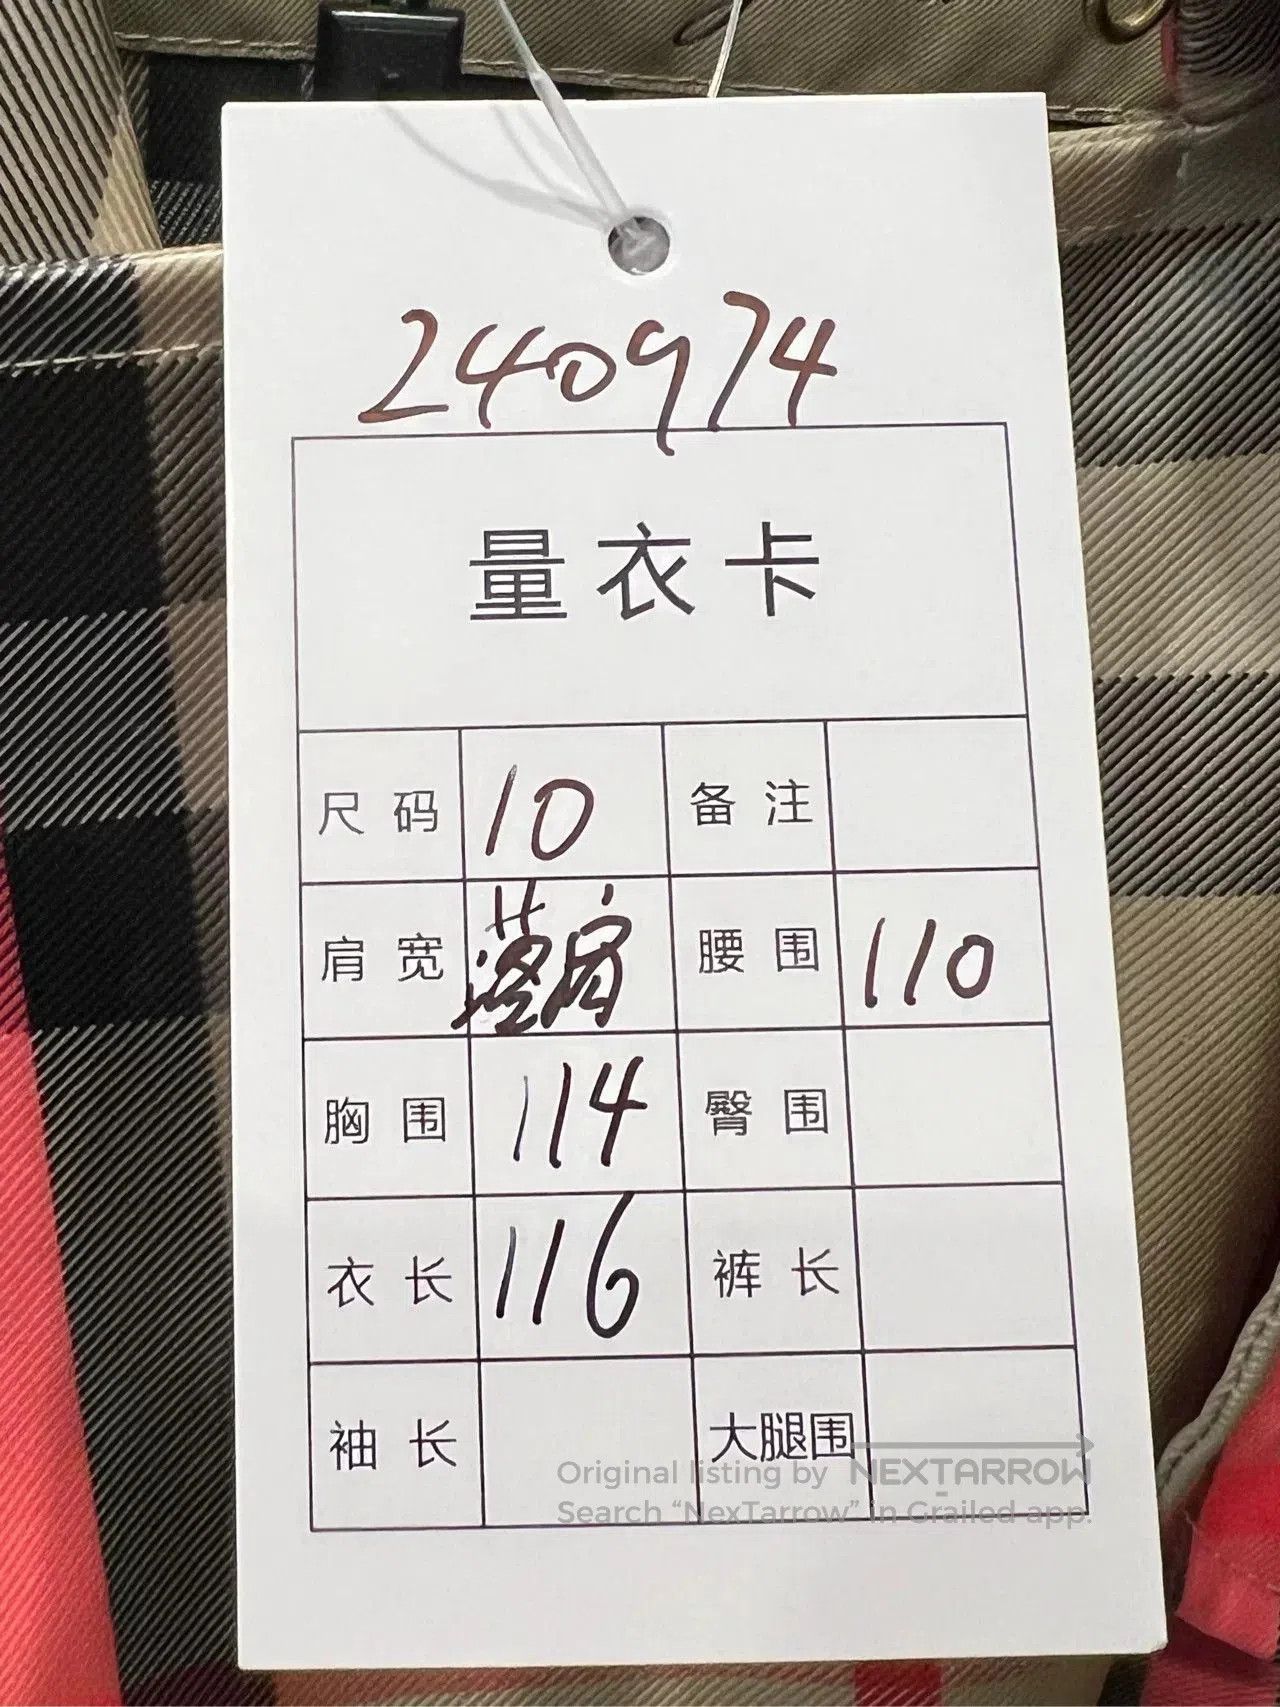 240974
量衣卡
尺码 10 备注
肩宽 落肩 腰围 110
胸围 114 臀围
衣长 116 裤长
袖长 大腿围
Original listing by NEXTARROW
Search “NexTarrow” in Grailed app.